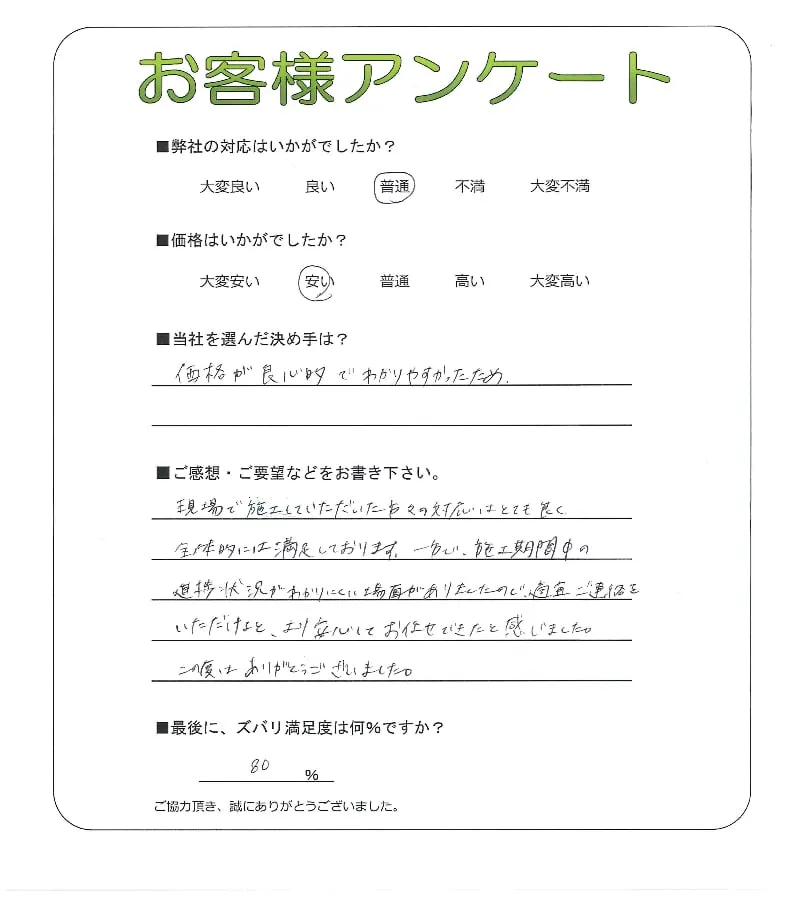 お客様アンケート
■弊社の対応はいかがでしたか？
大変良い 良い 普通 不満 大変不満
■価格はいかがでしたか？
大変安い 安い 普通 高い 大変高い
■当社を選んだ決め手は？
価格が良心的でわかりやすかったため。
■ご感想・ご要望などをお書き下さい。
現場で施工していただいた方々の対応はとても良く
全体的には満足しております。一方で、施工期間中の
進捗状況がわかりにくい場面がありましたので、適宜ご連絡を
いただけると、より安心してお任せできたと感じました。
この度はありがとうございました。
■最後に、ズバリ満足度は何%ですか？
80 %
ご協力頂き、誠にありがとうございました。